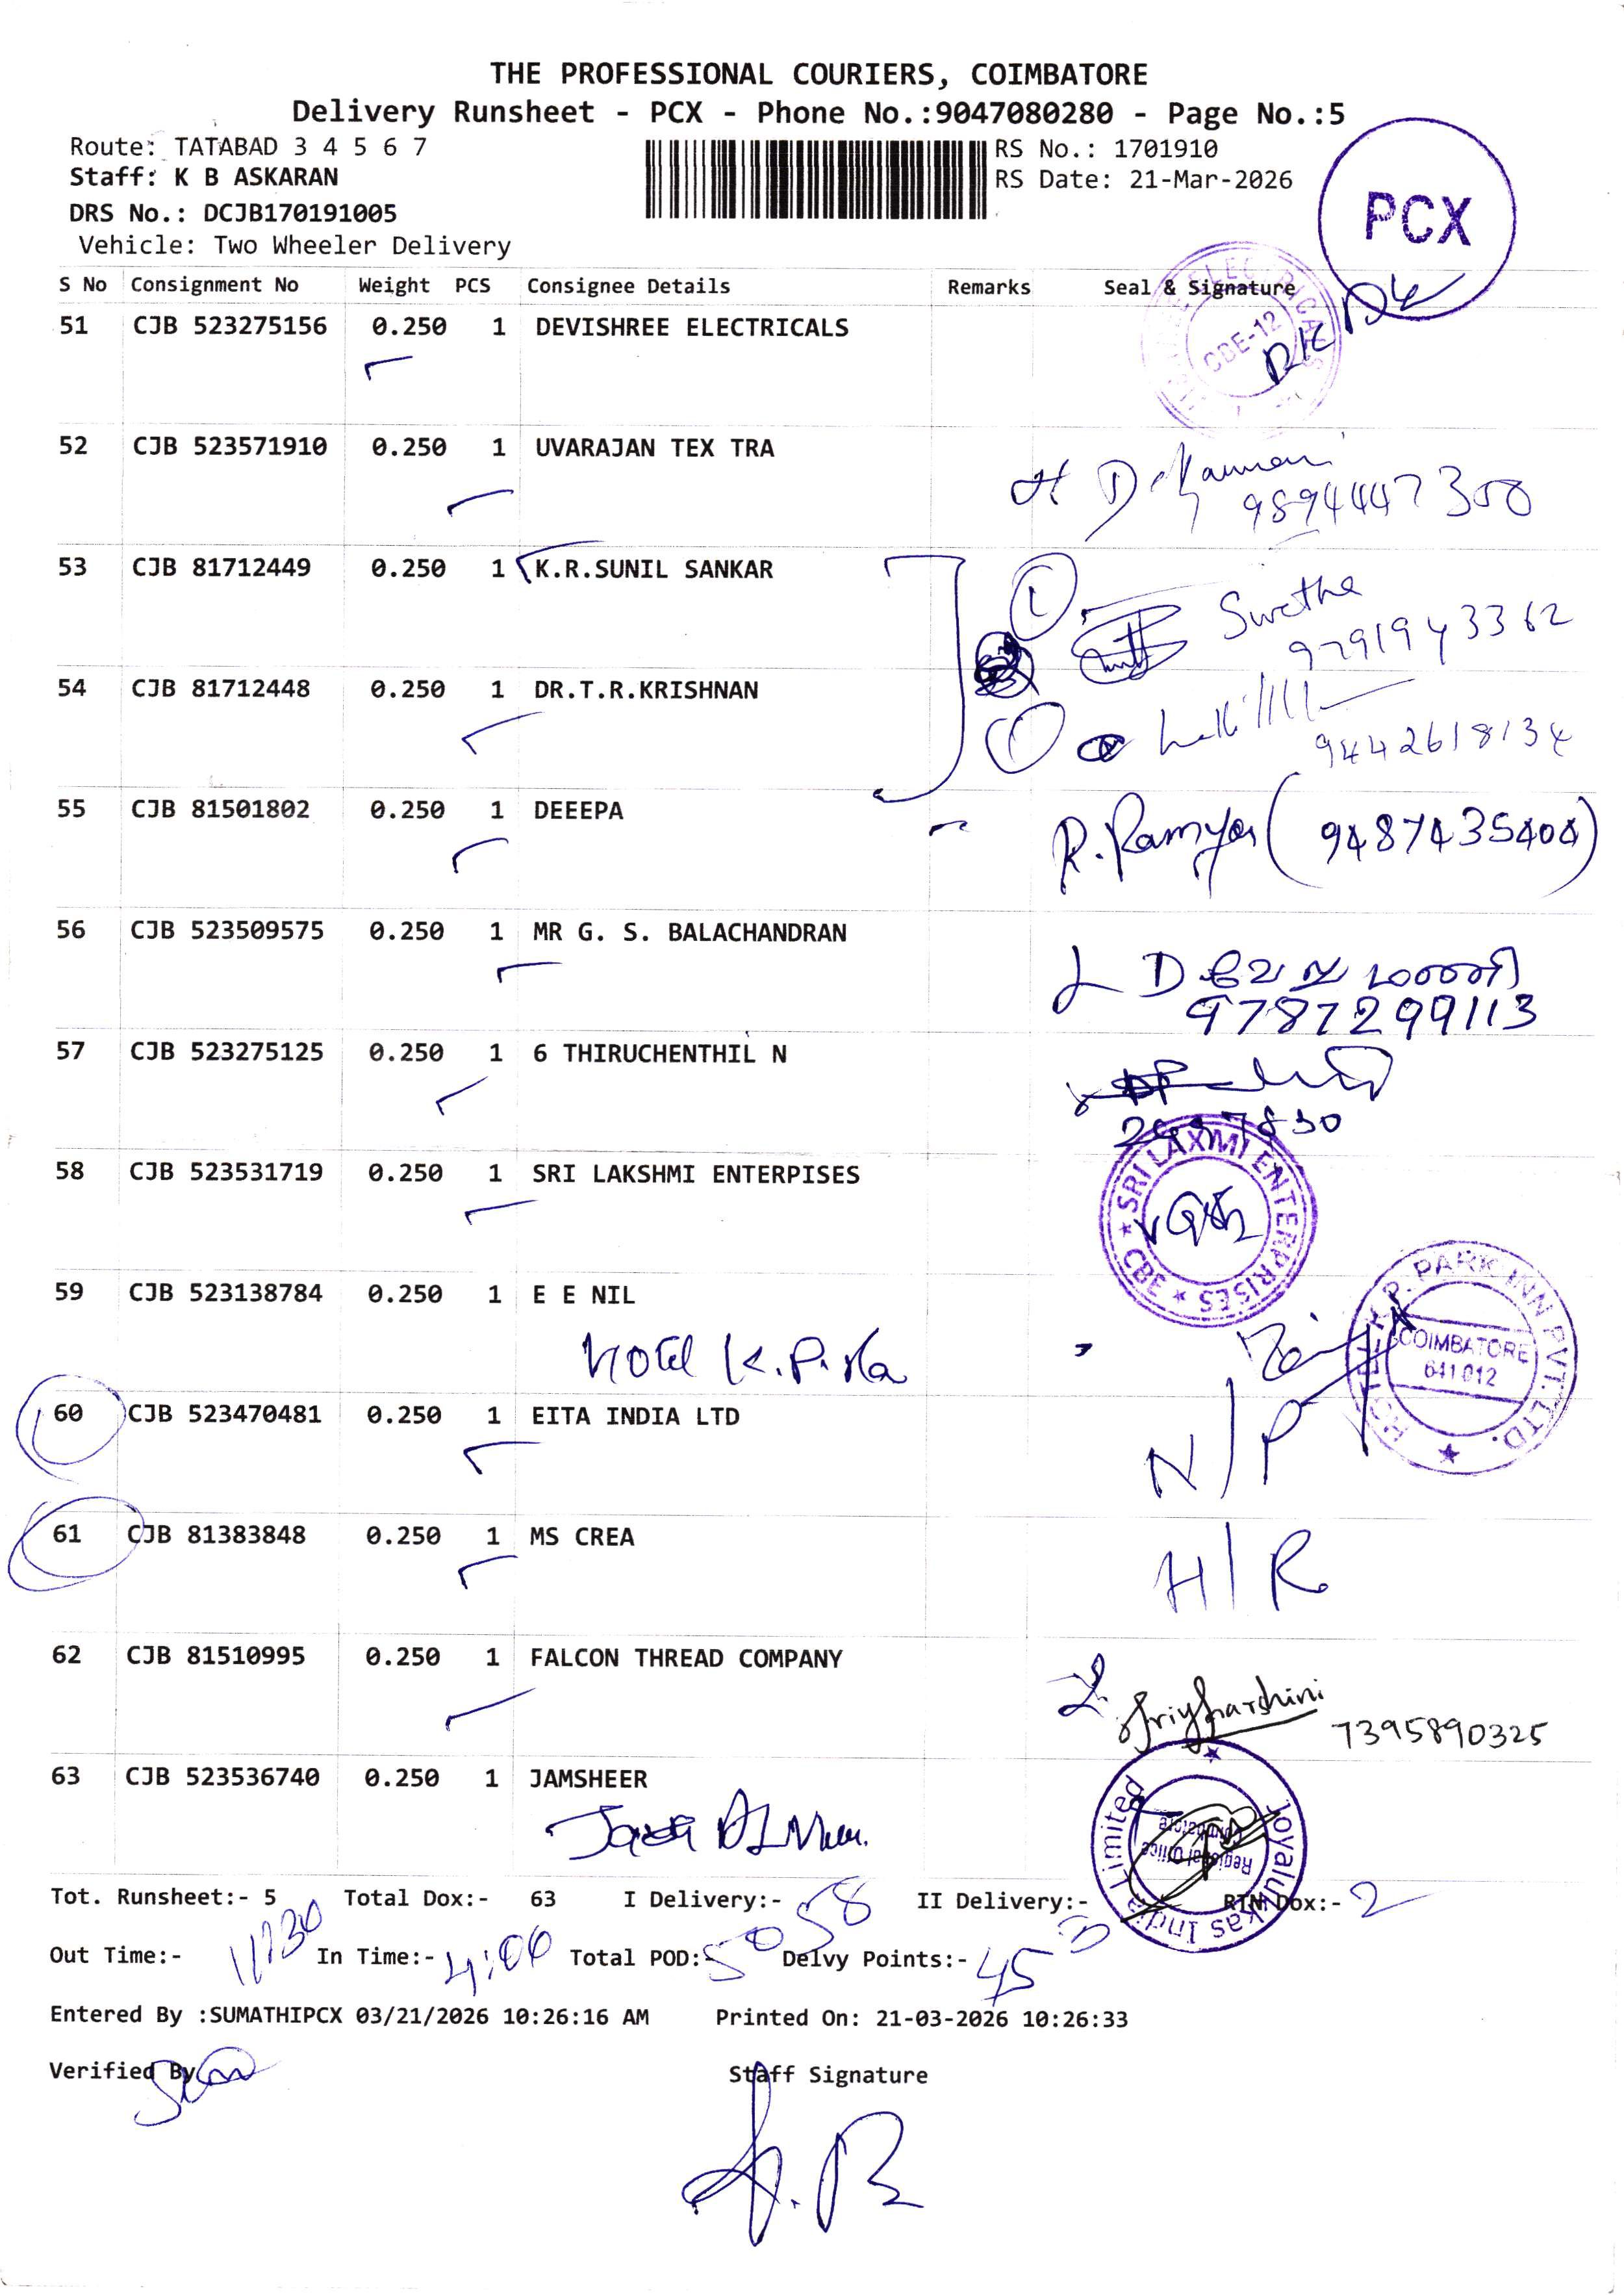 THE PROFESSIONAL COURIERS, COIMBATORE
Delivery Runsheet - PCX - Phone No.:9047080280 - Page No.:5
Route: TATABAD 3 4 5 6 7
RS No.: 1701910
Staff: K B ASKARAN
RS Date: 21-Mar-2026
PCX
DRS No.: DCJB170191005
Vehicle: Two Wheeler Delivery
S No Consignment No Weight PCS Consignee Details Remarks Seal & Signature
51 CJB 523275156 0.250 1 DEVISHREE ELECTRICALS
CBE-12
52 CJB 523571910 0.250 1 UVARAJAN TEX TRA
9894447300
53 CJB 81712449 0.250 1 K.R.SUNIL SANKAR
Swetha
9791943362
54 CJB 81712448 0.250 1 DR.T.R.KRISHNAN
9442618134
55 CJB 81501802 0.250 1 DEEEPA
R.Ramya (9487435404)
56 CJB 523509575 0.250 1 MR G. S. BALACHANDRAN
9787299113
57 CJB 523275125 0.250 1 6 THIRUCHENTHIL N
58 CJB 523531719 0.250 1 SRI LAKSHMI ENTERPISES
SRI LAXMI ENTERPRISES CBE
59 CJB 523138784 0.250 1 E E NIL
Hotel K.P.
HOTEL K.P. PARK INN PVT. LTD.
COIMBATORE
641 012
60 CJB 523470481 0.250 1 EITA INDIA LTD
N/P
61 CJB 81383848 0.250 1 MS CREA
H/R
62 CJB 81510995 0.250 1 FALCON THREAD COMPANY
Sriyharshini
7395890325
63 CJB 523536740 0.250 1 JAMSHEER
Joyalukkas India Limited
Regional Office
Coimbatore
Tot. Runsheet:- 5 Total Dox:- 63 I Delivery:- 58 II Delivery:- RTN Dox:- 2
Out Time:- 11/30 In Time:- 4:00 Total POD:- 50 Delvy Points:- 45
Entered By :SUMATHIPCX 03/21/2026 10:26:16 AM Printed On: 21-03-2026 10:26:33
Verified By
Staff Signature